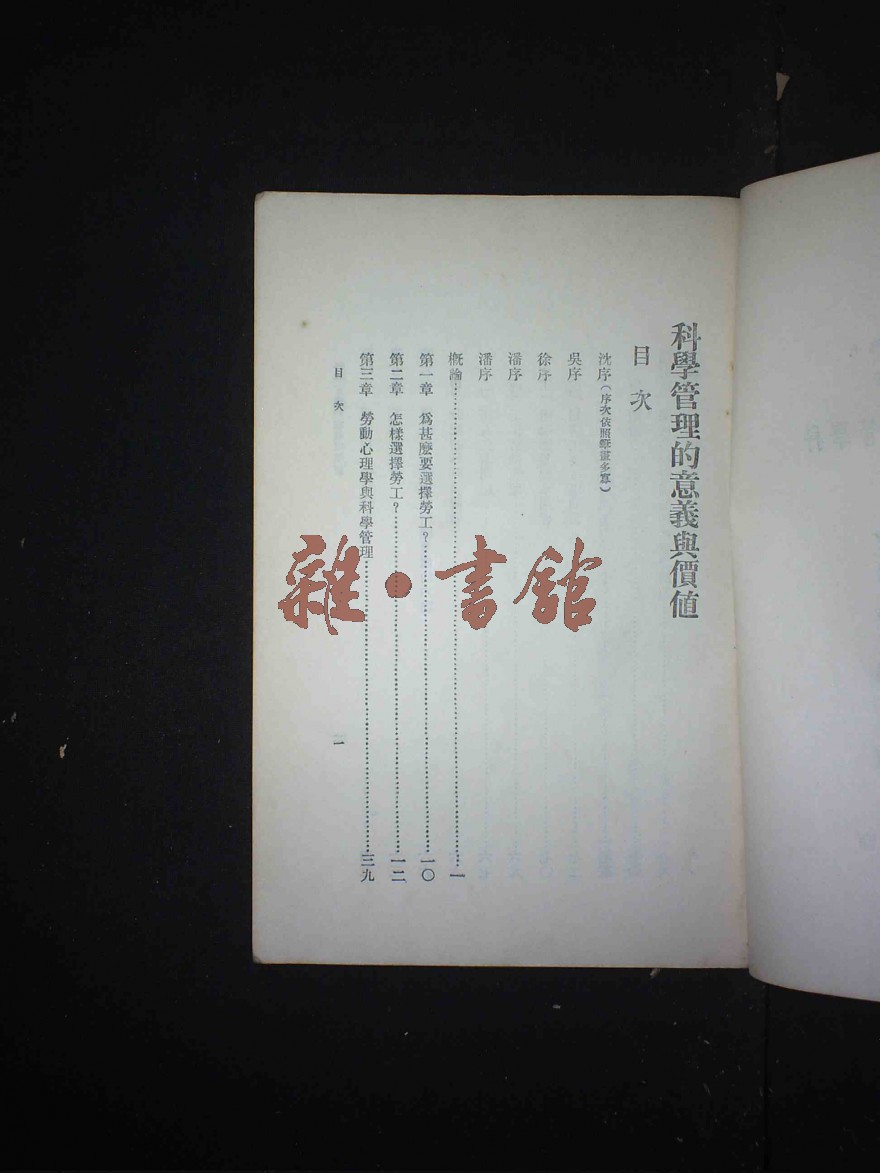 科學管理的意義與價値
目次
沈序(序次依照筆畫多寡)
吳序
徐序
潘序
潘序
概論…………一
第一章 爲甚麼要選擇勞工?…………一〇
第二章 怎樣選擇勞工?…………一二
第三章 勞動心理學與科學管理…………三九
目次
一
雜·書館